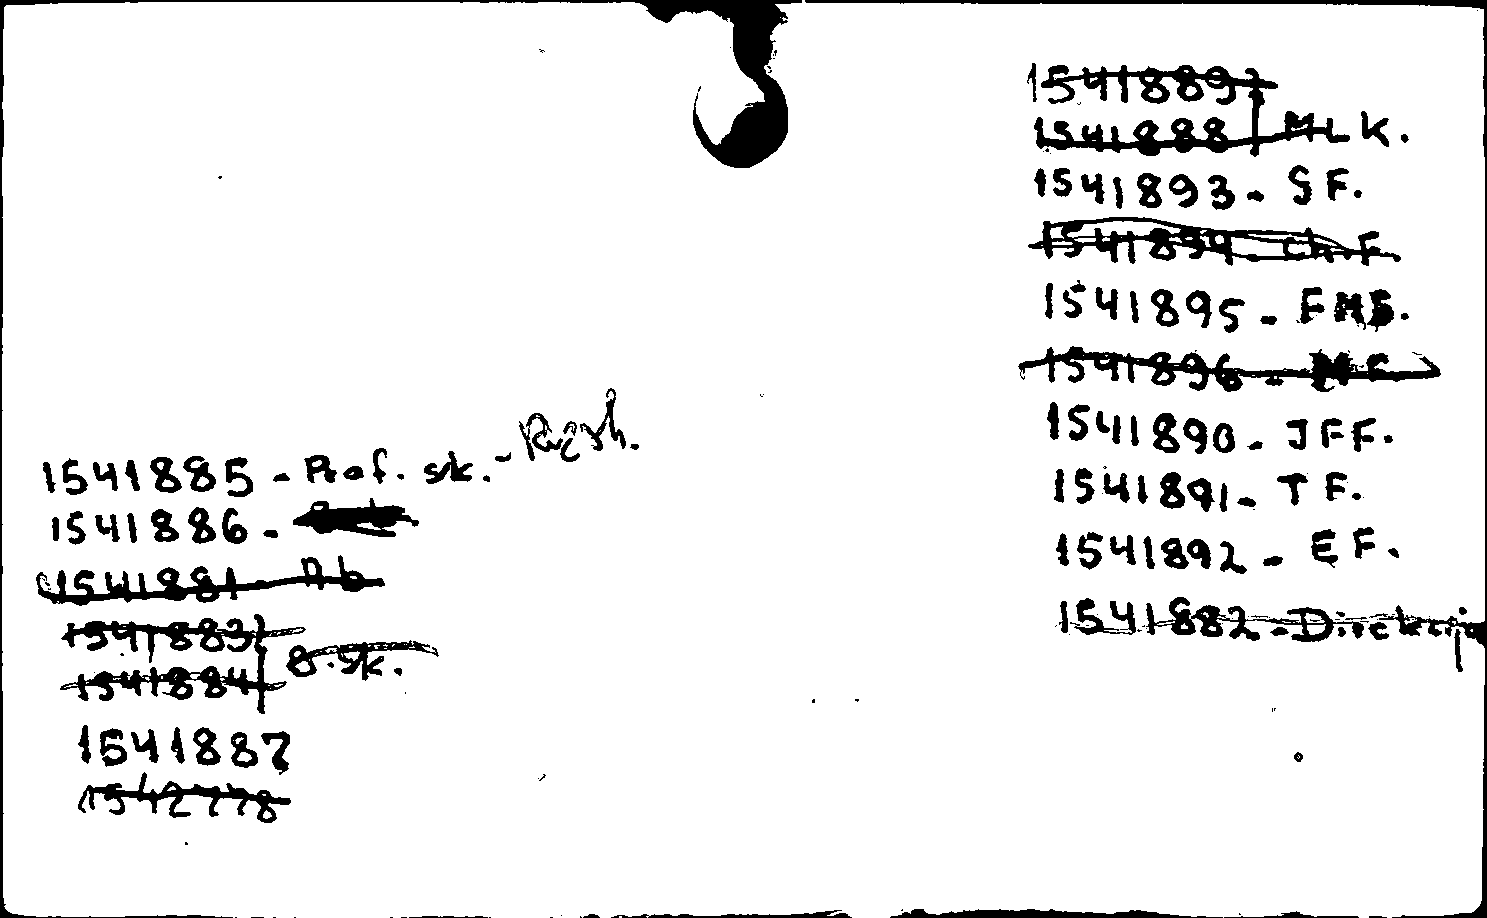 1541885 - Prof. sk. -
1541886 -
1541881 - Ab
1541883
1541884 B.sk.
1541887
1542778
1541889
1541888 MLK.
1541893 - SF.
1541894 - Ch.F
1541895 - FMB.
1541896 - MF
1541890 - JFF.
1541891 - TF.
1541892 - EF.
1541882 - Direktij